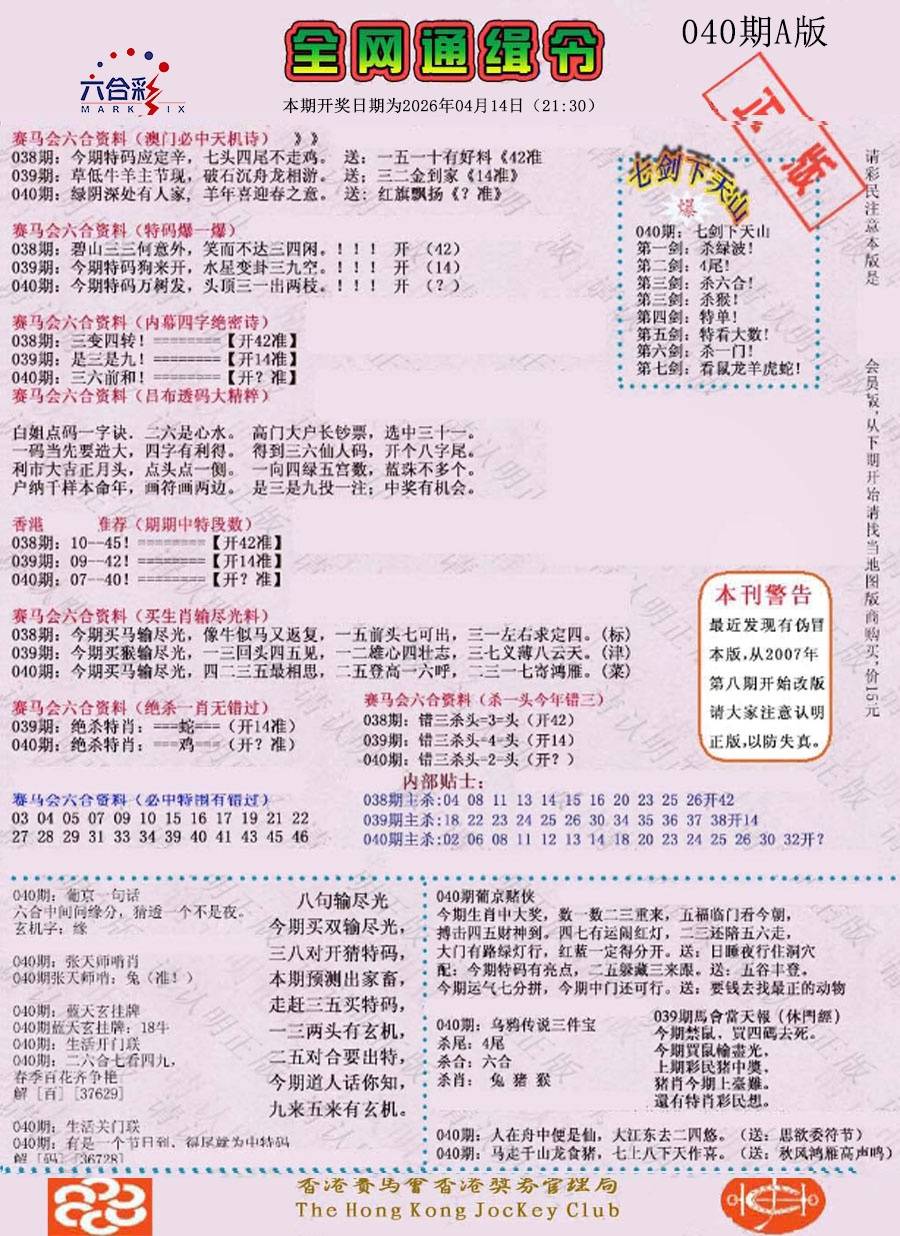 全网通缉令
040期A版
六合彩
MARK SIX
本期开奖日期为2026年04月14日（21:30）
正版
赛马会六合资料（澳门必中天机诗） 》》
038期：今期特码应定辛，七头四尾不走鸡。 送：一五一十有好料《42准
039期：草低牛羊主节现，破石沉舟龙相游。 送：三二金到家《14准》
040期：绿阴深处有人家，羊年喜迎春之意。 送：红旗飘扬《？准》
赛马会六合资料（特码爆一爆）
038期：碧山三三何意外，笑而不达三四闲。！！！ 开 （42）
039期：今期特码狗来开，水星变卦三九空。！！！ 开 （14）
040期：今期特码万树发，头顶三一出两枝。！！！ 开 （？）
赛马会六合资料（内幕四字绝密诗）
038期：三变四转！========【开42准】
039期：是三是九！========【开14准】
040期：三六前和！========【开？准】
赛马会六合资料（吕布透码大精粹）
白姐点码一字诀．二六是心水。 高门大户长钞票，选中三十一。
一码当先要造大，四字有利得。 得到三六仙人码，开个八字尾。
利市大吉正月头，点头点一侧。 一向四绿五宫数，蓝珠不多个。
户纳千样本命年，画符画两边。 是三是九投一注；中奖有机会。
七剑下天山
爆
040期：七剑下天山
第一剑：杀绿波！
第二剑：4尾！
第三剑：杀六合！
第三剑：杀猴！
第四剑：特单！
第五剑：特看大数！
第六剑：杀一门！
第七剑：看鼠龙羊虎蛇！
请彩民注意本版是
会员版，从下期开始请找当地图版商购买，价15元
香港 推荐（期期中特段数）
038期：10--45！========【开42准】
039期：09--42！========【开14准】
040期：07--40！========【开？准】
赛马会六合资料（买生肖输尽光料）
038期：今期买马输尽光，像牛似马又返复，一五前头七可出，三一左右求定四。（标）
039期：今期买猴输尽光，一三回头四五见，一二雄心四壮志，三七义薄八云天。（津）
040期：今期买马输尽光，四二三五最相思，二五登高一六呼，二三一七寄鸿雁。（菜）
本刊警告
最近发现有伪冒
本版，从2007年
第八期开始改版
请大家注意认明
正版，以防失真。
赛马会六合资料（绝杀一肖无错过）
039期：绝杀特肖：===蛇===（开14准）
040期：绝杀特肖：===鸡===（开？准）
赛马会六合资料（杀一头今年错三）
038期：错三杀头=3=头（开42）
039期：错三杀头=4=头（开14）
040期：错三杀头=2=头（开？）
内部贴士：
038期主杀:04 08 11 13 14 15 16 20 23 25 26开42
039期主杀:18 22 23 24 25 26 30 34 35 36 37 38开14
040期主杀:02 06 08 11 12 13 14 18 20 23 24 25 26 30 32开?
赛马会六合资料（必中特围有错过）
03 04 05 07 09 10 15 16 17 19 21 22
27 28 29 31 33 34 39 40 41 43 45 46
040期：葡京一句话
六合中间问缘分，猜透一个不是夜。
玄机字：缘
040期：张天师哨肖
040期张天师哨：兔（准！）
040期：蓝天玄挂牌
040期蓝天玄挂牌：18牛
040期：生活开门联
040期：二六合七看四九，
春季百花齐争艳
解［百］[37629]
040期：生活关门联
040期：有是一个节日到，得尾就为中特码
解［码］[36728]
八句输尽光
今期买双输尽光，
三八对开猜特码，
本期预测出家畜，
走赶三五买特码，
一三两头有玄机，
二五对合要出特，
今期道人话你知，
九来五来有玄机。
040期葡京赌侠
今期生肖中大奖，数一数二三重来，五福临门看今朝，
搏击四五财神到。四七有运闹红灯，二三还陪五六走，
大门有路绿灯行，红蓝一定得分开。送：日睡夜行住洞穴
配：今期特码有亮点，二五躲藏三来跟。送：五谷丰登。
今期运气七分拼，今期中门还可行。送：要钱去找最正的动物
040期：乌鸦传说三件宝
杀尾：4尾
杀合：六合
杀肖： 兔 猪 猴
039期馬會當天報（休門經）
今期禁鼠．買四碼去死。
今期買鼠輸盡光，
上期彩民猪中獎，
猪肖今期上臺難。
還有特肖彩民想。
040期：人在舟中便是仙，大江东去二四悠。（送：思欲委符节）
040期：马走千山龙食猪，七上八下天作喜。（送：秋风鸿雁高声鸣）
香港賽馬會香港獎券管理局
The Hong Kong JocKey Club